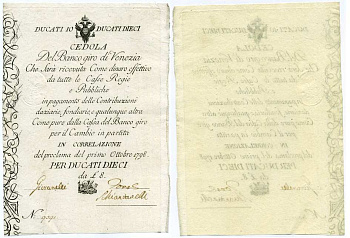 DUCATI 10 DUCATI DIECI
CEDOLA
Del Banco giro di Venezia
Che Sarà ricevuta Come dinaro effettivo
da tutte le Casse Regie
e Pubbliche
in pagamento delle Contribuzioni
daziarie, fondiarie, e qualunque altra
Come pure dalla Cassa del Banco giro
per il Cambio in partita
IN CORRELAZIONE
del proclama del primo Ottobre 1798.
PER DUCATI DIECI
da £ 8.
N.o